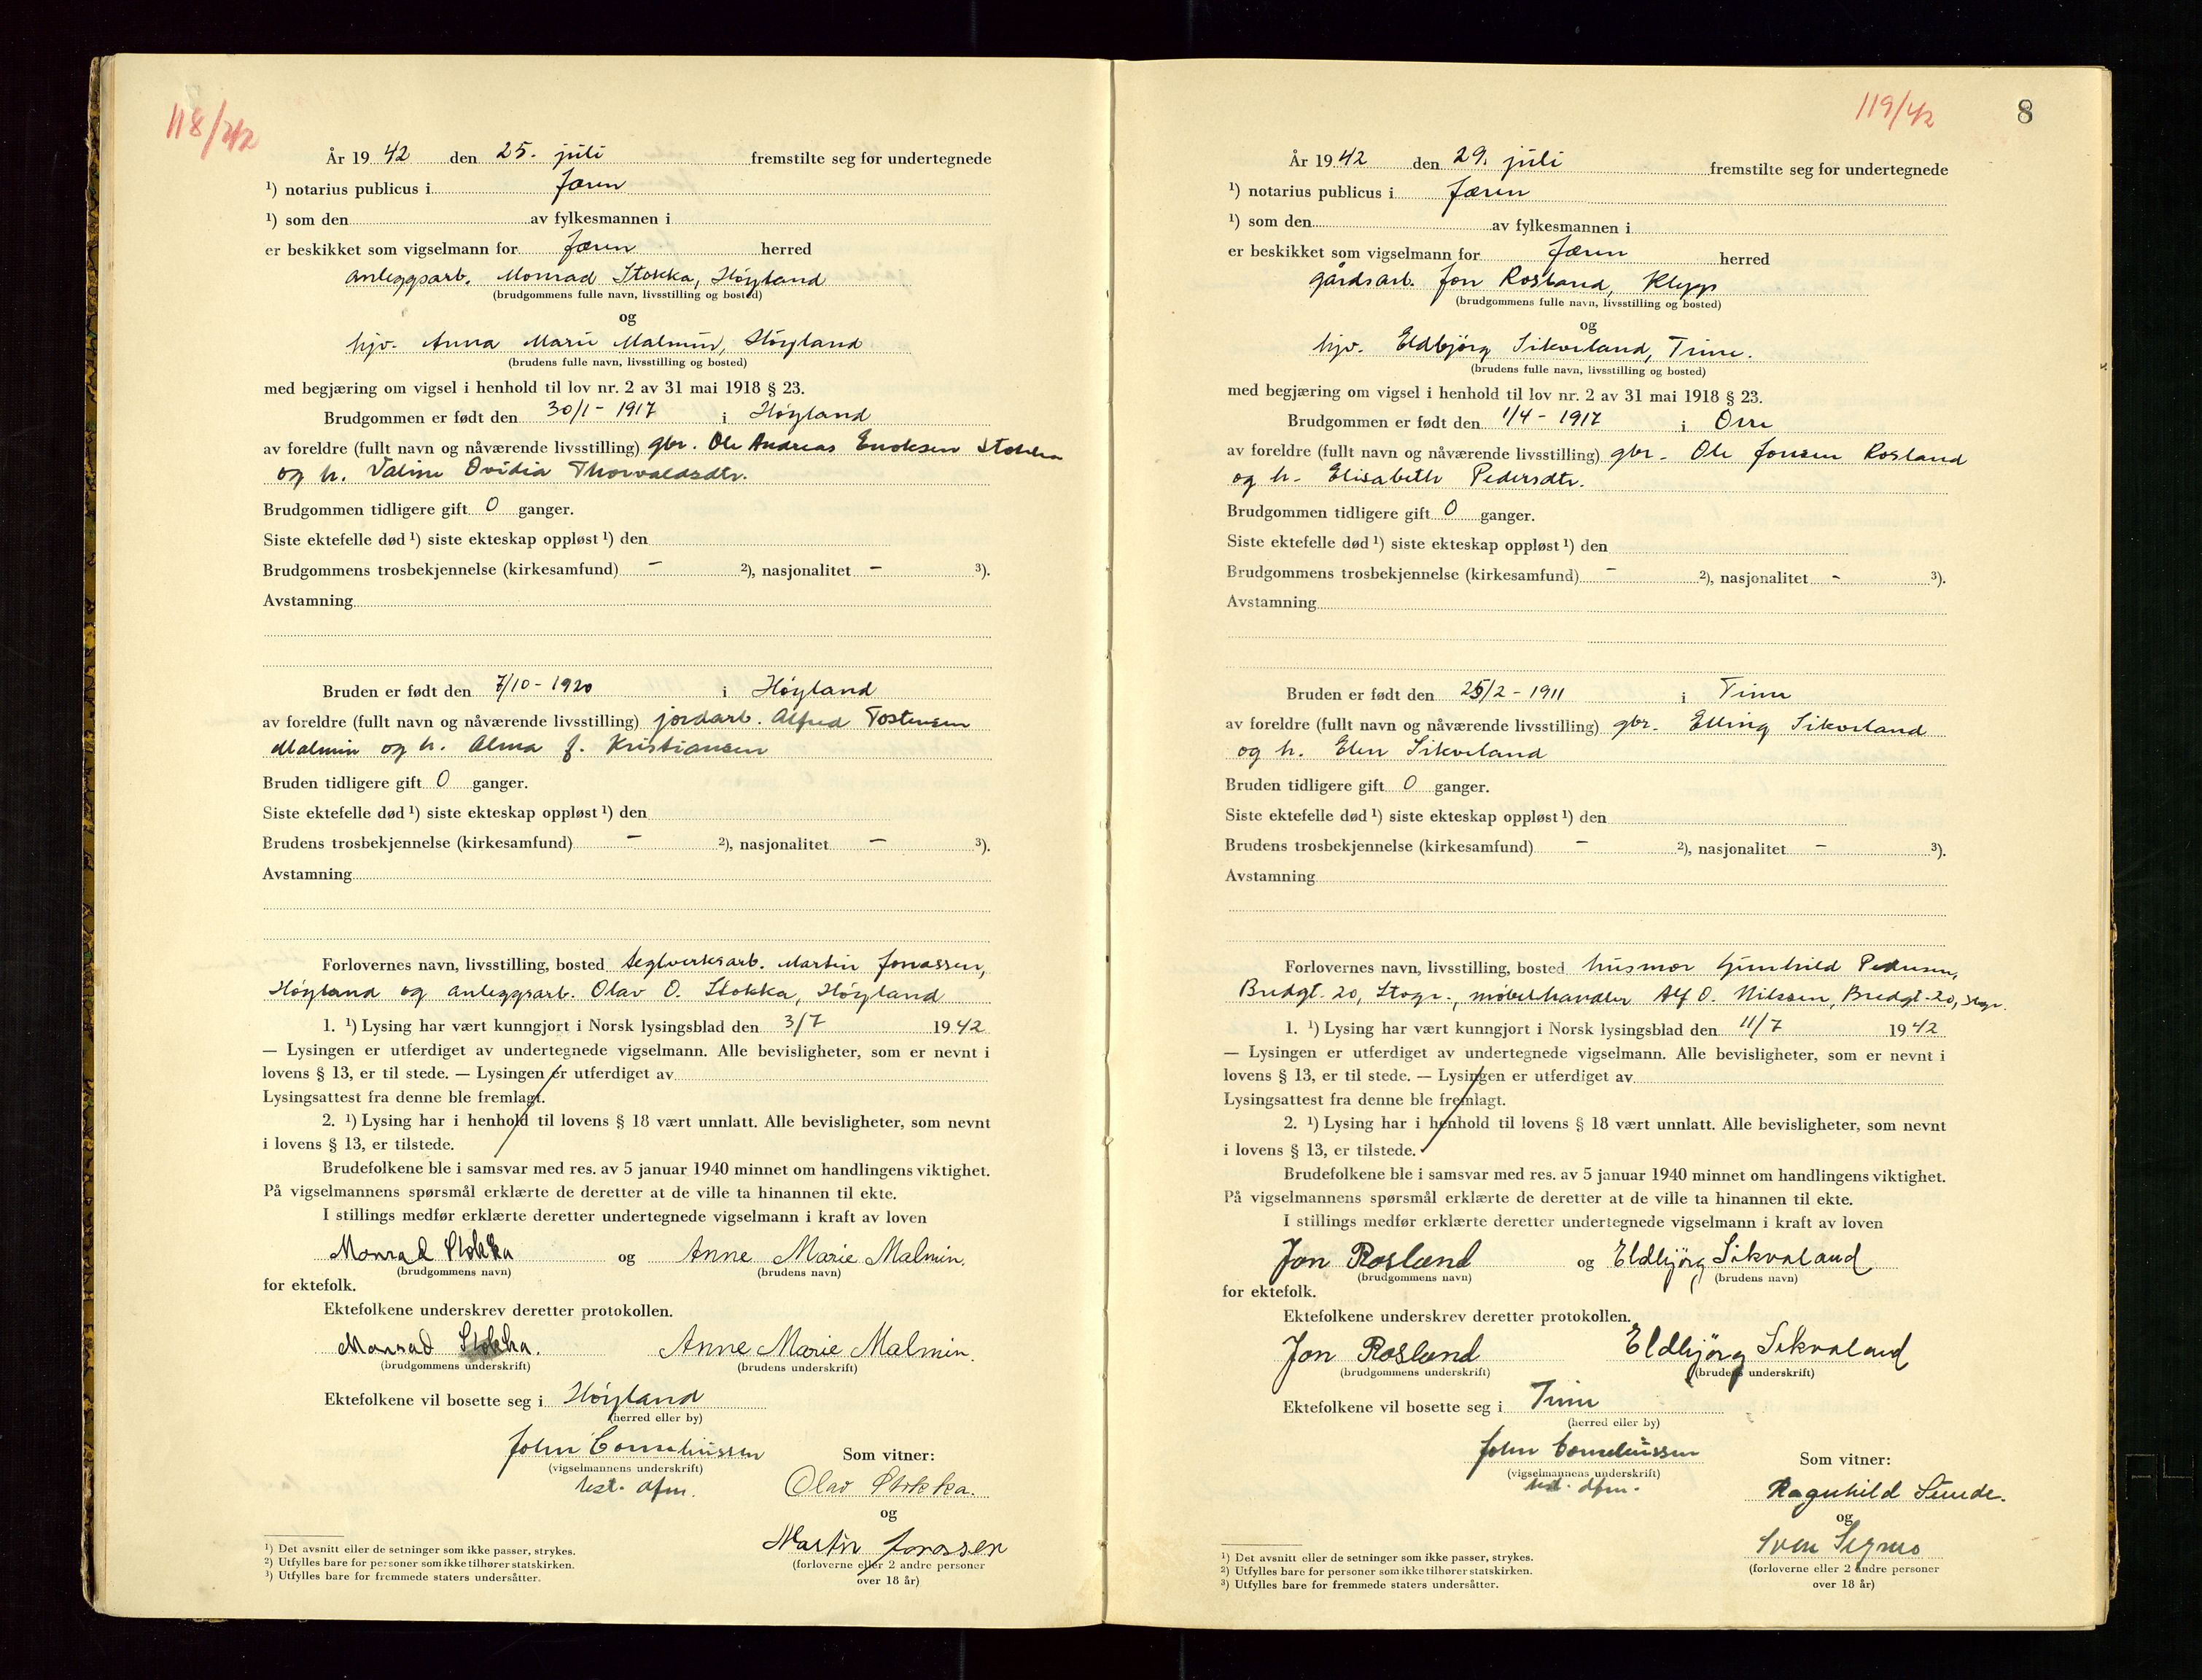 118/42
År 1942 den 25. juli fremstilte seg for undertegnede
¹) notarius publicus i Jæren
¹) som den av fylkesmannen i
er beskikket som vigselmann for Jæren herred
anleggsarb. Monrad Stokka, Høyland
(brudgommens fulle navn, livsstilling og bosted)
og
hjv. Anna Marie Malmin, Høyland
(brudens fulle navn, livsstilling og bosted)
med begjæring om vigsel i henhold til lov nr. 2 av 31 mai 1918 § 23.
Brudgommen er født den 30/1 - 1917 i Høyland
av foreldre (fullt navn og nåværende livsstilling) gbr. Ole Andreas Enoksen Stokka
og h. Valine Ovidia Thorvaldsdtr.
Brudgommen tidligere gift 0 ganger.
Siste ektefelle død ¹) siste ekteskap oppløst ¹) den
Brudgommens trosbekjennelse (kirkesamfund) - ²), nasjonalitet - ³).
Avstamning
Bruden er født den 7/10 - 1920 i Høyland
av foreldre (fullt navn og nåværende livsstilling) jordarb. Alfred Tostensen
Malmin og h. Alma J. Kristiansen
Bruden tidligere gift 0 ganger.
Siste ektefelle død ¹) siste ekteskap oppløst ¹) den
Brudens trosbekjennelse (kirkesamfund) - ²), nasjonalitet - ³).
Avstamning
Forlovernes navn, livsstilling, bosted teglverksarb. Martin Jonassen,
Høyland og anleggsarb. Olav O. Stokka, Høyland
1. ¹) Lysing har vært kunngjort i Norsk lysingsblad den 3/7 1942
— Lysingen er utferdiget av undertegnede vigselmann. Alle bevisligheter, som er nevnt i
lovens § 13, er til stede. — Lysingen er utferdiget av
Lysingsattest fra denne ble fremlagt.
2. ¹) Lysing har i henhold til lovens § 18 vært unnlatt. Alle bevisligheter, som nevnt
i lovens § 13, er tilstede.
Brudefolkene ble i samsvar med res. av 5 januar 1940 minnet om handlingens viktighet.
På vigselmannens spørsmål erklærte de deretter at de ville ta hinannen til ekte.
I stillings medfør erklærte deretter undertegnede vigselmann i kraft av loven
Monrad Stokka og Anne Marie Malmin.
(brudgommens navn) (brudens navn)
for ektefolk.
Ektefolkene underskrev deretter protokollen.
Monrad Stokka. Anne Marie Malmin.
(brudgommens underskrift) (brudens underskrift)
Ektefolkene vil bosette seg i Høyland
(herred eller by)
John Corneliussen
(vigselmannens underskrift)
kst. dfm.
Som vitner:
Olav Stokka.
og
Martin Jonassen
(forloverne eller 2 andre personer
over 18 år)
¹) Det avsnitt eller de setninger som ikke passer, strykes.
²) Utfylles bare for personer som ikke tilhører statskirken.
³) Utfylles bare for fremmede staters undersåtter.
119/42
8
År 1942 den 29. juli fremstilte seg for undertegnede
¹) notarius publicus i Jæren
¹) som den av fylkesmannen i
er beskikket som vigselmann for Jæren herred
gårdsarb. Jon Rosland, Klepp
(brudgommens fulle navn, livsstilling og bosted)
og
hjv. Eldbjörg Sikveland, Time.
(brudens fulle navn, livsstilling og bosted)
med begjæring om vigsel i henhold til lov nr. 2 av 31 mai 1918 § 23.
Brudgommen er født den 1/4 - 1917 i Orre
av foreldre (fullt navn og nåværende livsstilling) gbr. Ole Jonsen Rosland
og h. Elisabeth Pedersdtr.
Brudgommen tidligere gift 0 ganger.
Siste ektefelle død ¹) siste ekteskap oppløst ¹) den
Brudgommens trosbekjennelse (kirkesamfund) - ²), nasjonalitet - ³).
Avstamning
Bruden er født den 25/2 - 1911 i Time
av foreldre (fullt navn og nåværende livsstilling) gbr. Elling Sikveland
og h. Elen Sikveland
Bruden tidligere gift 0 ganger.
Siste ektefelle død ¹) siste ekteskap oppløst ¹) den
Brudens trosbekjennelse (kirkesamfund) - ²), nasjonalitet - ³).
Avstamning
Forlovernes navn, livsstilling, bosted husmor Gunhild Pedersen,
Bredgt. 20, Stvgr., møbelhandler Alf O. Nilssen, Bredgt. 20,
1. ¹) Lysing har vært kunngjort i Norsk lysingsblad den 11/7 1942
— Lysingen er utferdiget av undertegnede vigselmann. Alle bevisligheter, som er nevnt i
lovens § 13, er til stede. — Lysingen er utferdiget av
Lysingsattest fra denne ble fremlagt.
2. ¹) Lysing har i henhold til lovens § 18 vært unnlatt. Alle bevisligheter, som nevnt
i lovens § 13, er tilstede.
Brudefolkene ble i samsvar med res. av 5 januar 1940 minnet om handlingens viktighet.
På vigselmannens spørsmål erklærte de deretter at de ville ta hinannen til ekte.
I stillings medfør erklærte deretter undertegnede vigselmann i kraft av loven
Jon Rosland og Eldbjörg Sikvaland
(brudgommens navn) (brudens navn)
for ektefolk.
Ektefolkene underskrev deretter protokollen.
Jon Rosland Eldbjörg Sikvaland
(brudgommens underskrift) (brudens underskrift)
Ektefolkene vil bosette seg i Time
(herred eller by)
John Corneliussen
(vigselmannens underskrift)
kst. dfm.
Som vitner:
Ragnhild Sunde.
og
Sven
(forloverne eller 2 andre personer
over 18 år)
¹) Det avsnitt eller de setninger som ikke passer, strykes.
²) Utfylles bare for personer som ikke tilhører statskirken.
³) Utfylles bare for fremmede staters undersåtter.